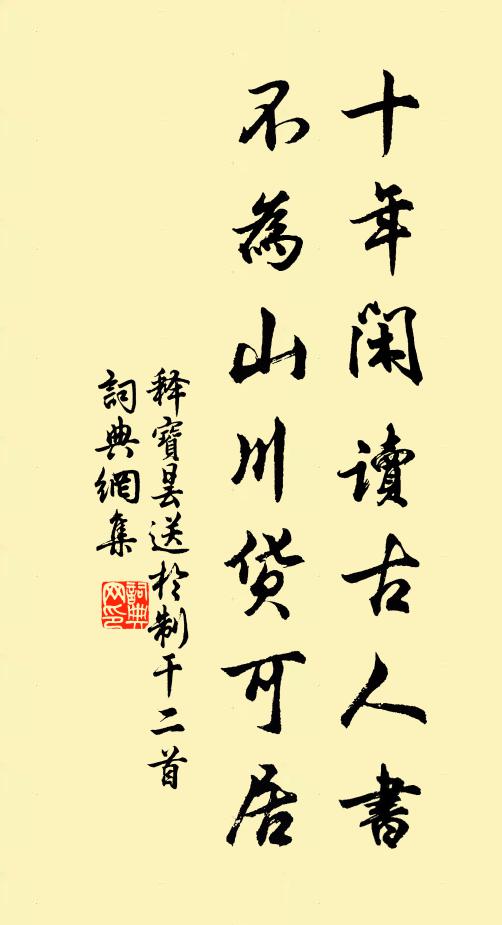 十年閑讀古人書
不為山川貨可居
釋寶曇送於制干二首
詞典網集
詞典
网印